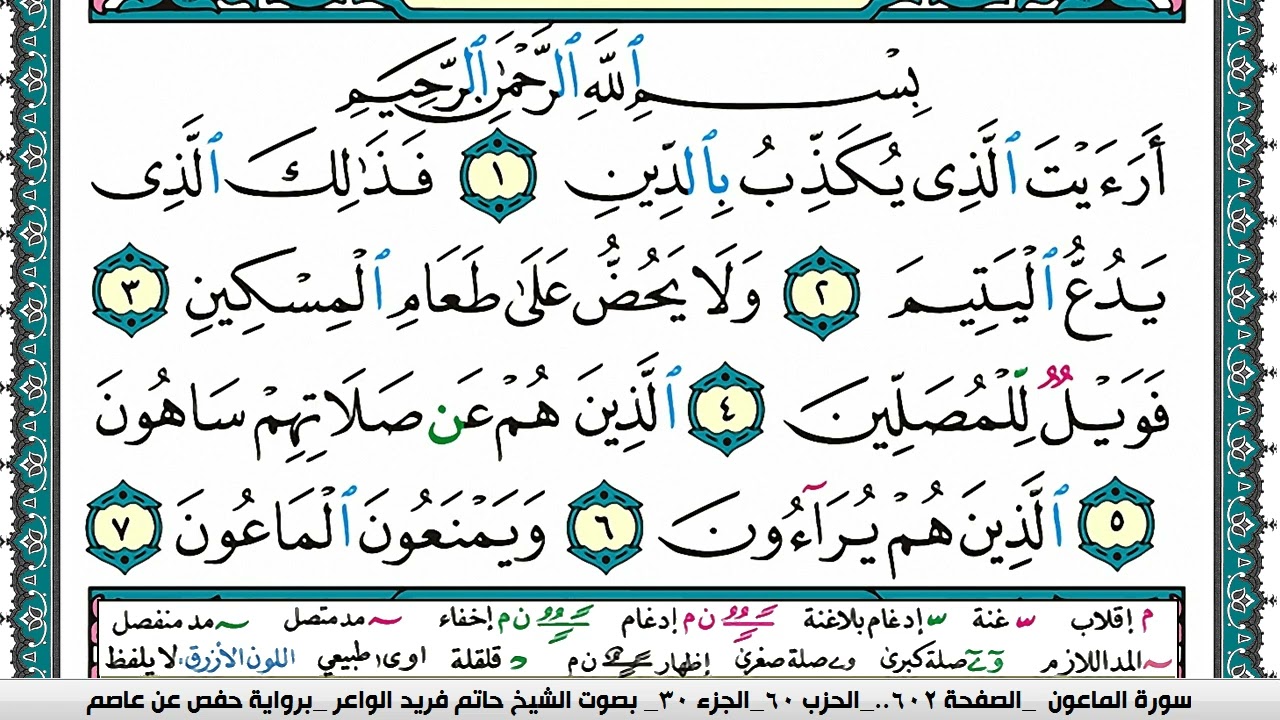 بِسْمِ ٱللَّهِ ٱلرَّحْمَٰنِ ٱلرَّحِيمِ
أَرَءَيْتَ ٱلَّذِى يُكَذِّبُ بِٱلدِّينِ ١ فَذَٰلِكَ ٱلَّذِى
يَدُعُّ ٱلْيَتِيمَ ٢ وَلَا يَحُضُّ عَلَىٰ طَعَامِ ٱلْمِسْكِينِ ٣
فَوَيْلٌ لِّلْمُصَلِّينَ ٤ ٱلَّذِينَ هُمْ عَن صَلَاتِهِمْ سَاهُونَ
٥ ٱلَّذِينَ هُمْ يُرَآءُونَ ٦ وَيَمْنَعُونَ ٱلْمَاعُونَ ٧
م إقلاب س غنة س إدغام بلاغنة ن م إدغام ن م إخفاء مد متصل مد منفصل
المد اللازم صلة كبرى صلة صغرى إظهار ن م قلقلة اوى طبيعي اللون الأزرق، لا يلفظ
سورة الماعون _الصفحة ٦٠٢.._الحزب ٦٠_الجزء ٣٠_ بصوت الشيخ حاتم فريد الواعر _برواية حفص عن عاصم